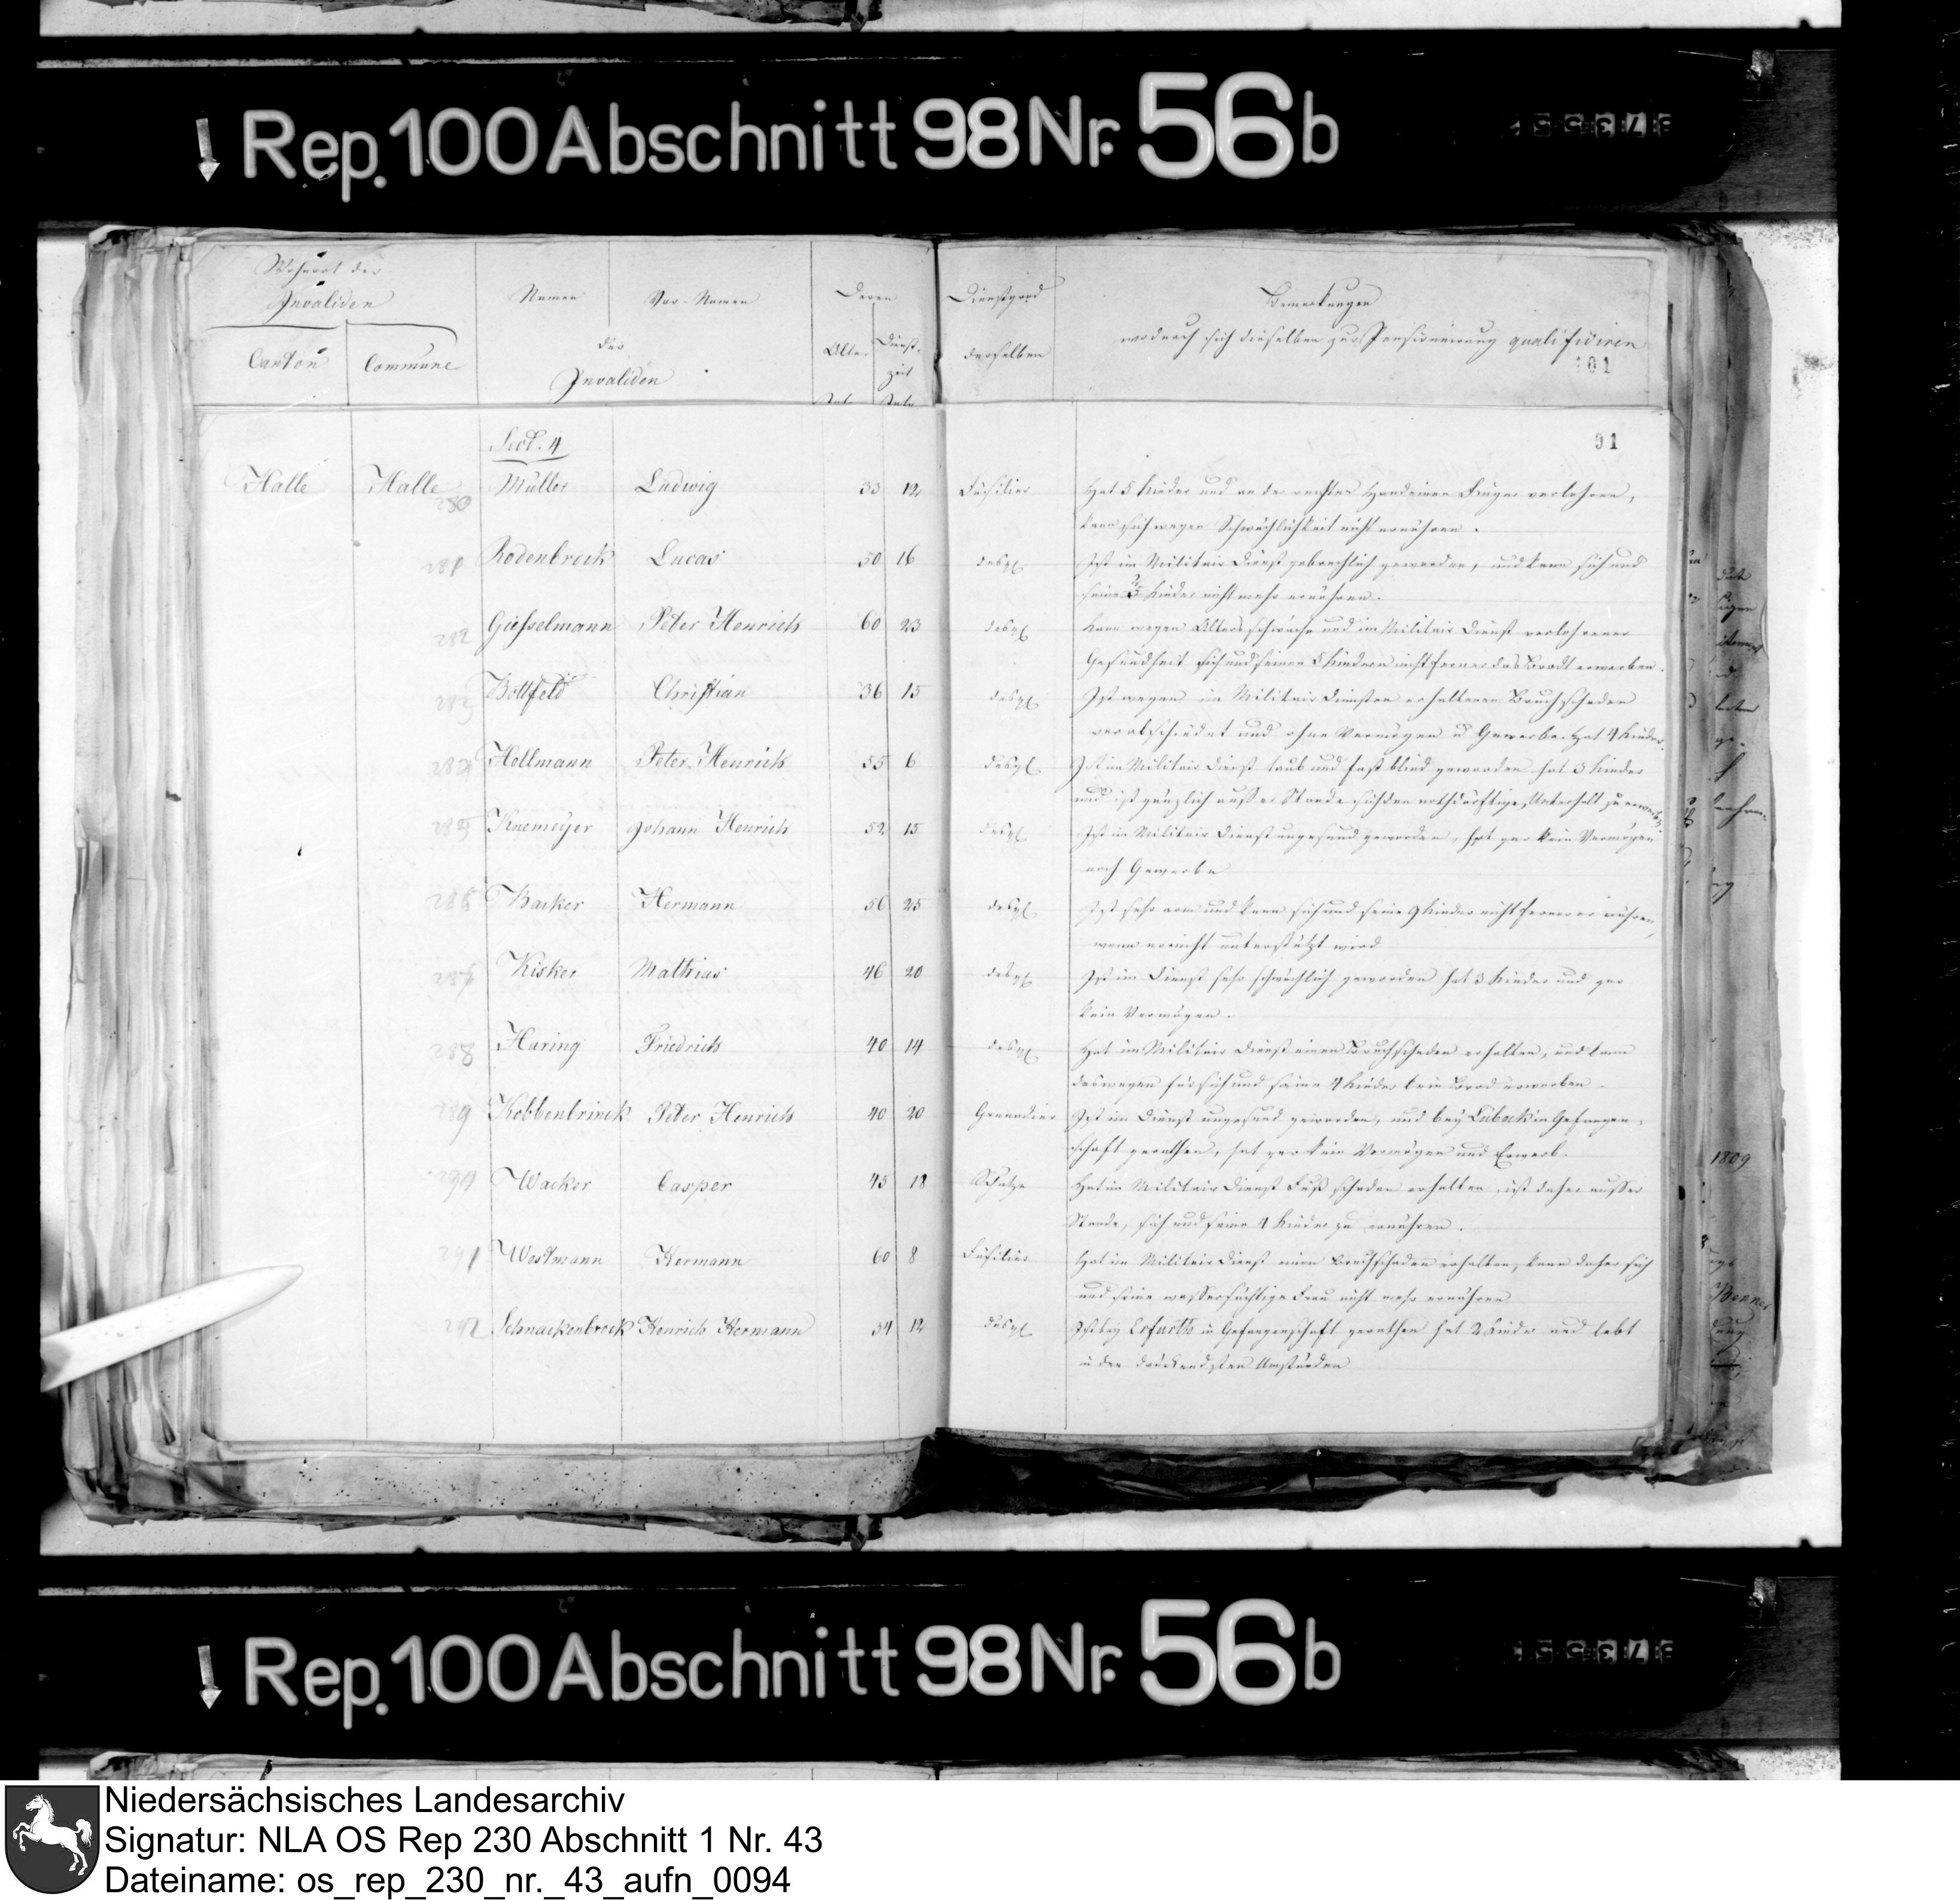 Rep. 100 Abschnitt 98 Nr. 56b
Wohnort der
Invaliden
Namen
Vor-Namen
Deren
Dienstgrad
Bemerkungen
Canton
Commune
der
Invaliden
Alter
Dienst-
zeit
derselben
wodurch sich dieselben zur Pensionierung qualificiren
101
Sect. 4
91
Halle Halle 280 Müller Ludwig 33 12 Füsilier Hat 5 Kinder und an der rechten Hand einen Finger verlohren,
kann sich wegen Schwächlichkeit nicht ernähren.
281 Rodenbrock Lucas 50 16 desgl Ist im Militair Dienst gebrechlich geworden, und kann sich und
seine Kinder nicht mehr ernähren.
282 Giesselmann Peter Henrich 60 23 desgl Kann wegen Altersschwäche und im Militair Dienst verlohrener
Gesundheit sich und seinen 5 Kindern nicht ferner das Brodt erwerben.
283 Bottfeld Christian 36 15 desgl Ist wegen im Militair Diensten erhaltenen Bruchschaden
verabschiedet und ohne Vermögen u Gewerbe. Hat 4 Kinder.
284 Hollmann Peter Henrich 55 6 desgl Ist im Militair Dienst taub und fast blind geworden hat 3 Kinder
und ist gänzlich ausser Stande sich den nothdürftigen Unterhalt zu erwerben.
285 Knemeyer Johann Henrich 52 15 desgl Ist im Militair Dienst ungesund geworden, hat gar kein Vermögen
noch Gewerbe
286 Backer Hermann 56 25 desgl Ist sehr arm und kann sich und seine 9 Kinder nicht ferner ernähren,
wenn er nicht unterstützt wird
287 Kisker Mathias 46 20 desgl Ist im Dienst sehr schwächlich geworden hat 3 Kinder und gar
kein Vermögen.
288 Haring Friedrich 40 14 desgl Hat im Militair Dienst einen Bruchschaden erhalten, und kann
deswegen für sich und seine 4 Kinder kein Brod erwerben.
289 Kobbenbrinck Peter Henrich 40 20 Grenadier Ist im Dienst ungesund geworden, und bey Lübeck in Gefangen-
schaft gerathen, hat gar kein Vermögen und Erwerb.
290 Wacker Casper 45 18 Schütze Hat im Militair Dienst Fuß schaden erhalten, ist daher ausser
Stande, sich und seine 4 Kinder zu ernähren.
291 Westmann Hermann 60 8 Füsilier Hat im Militair Dienst einen Bruchschaden erhalten, kann daher sich
und seine wassersüchtige Frau nicht mehr ernähren
292 Schnackenbrock Henrich Hermann 34 12 desgl Ist bey Erfurth in Gefangenschaft gerathen hat 2 Kinder und lebt
in den drückendsten Umständen
1809
Rep. 100 Abschnitt 98 Nr. 56b
Niedersächsisches Landesarchiv
Signatur: NLA OS Rep 230 Abschnitt 1 Nr. 43
Dateiname: os_rep_230_nr._43_aufn_0094